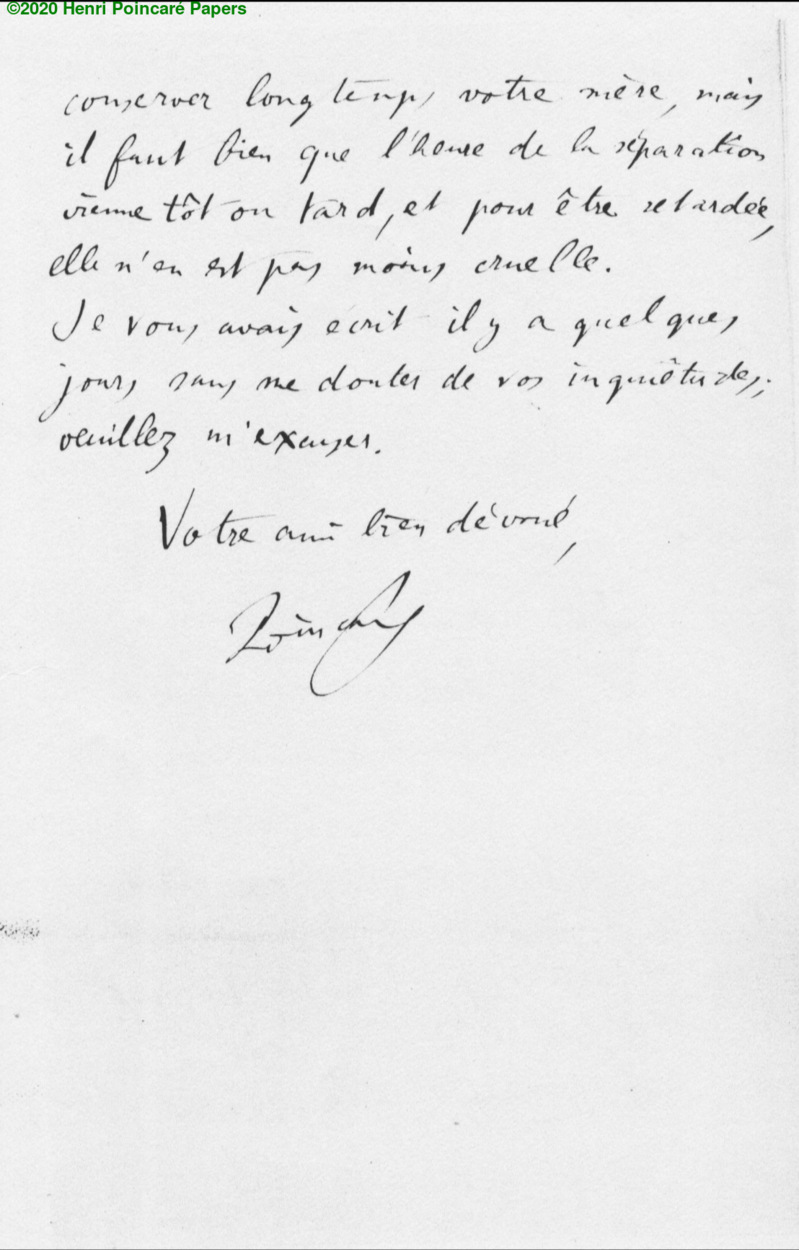 ©2020 Henri Poincaré Papers
conserver longtemps votre mère, mais
il faut bien que l'heure de la séparation
vienne tôt ou tard, et pour être retardée,
elle n'en est pas moins cruelle.
Je vous avais écrit il y a quelques
jours sans me douter de vos inquiétudes;
veuillez m'excuser.
Votre ami bien dévoué,
Poincaré